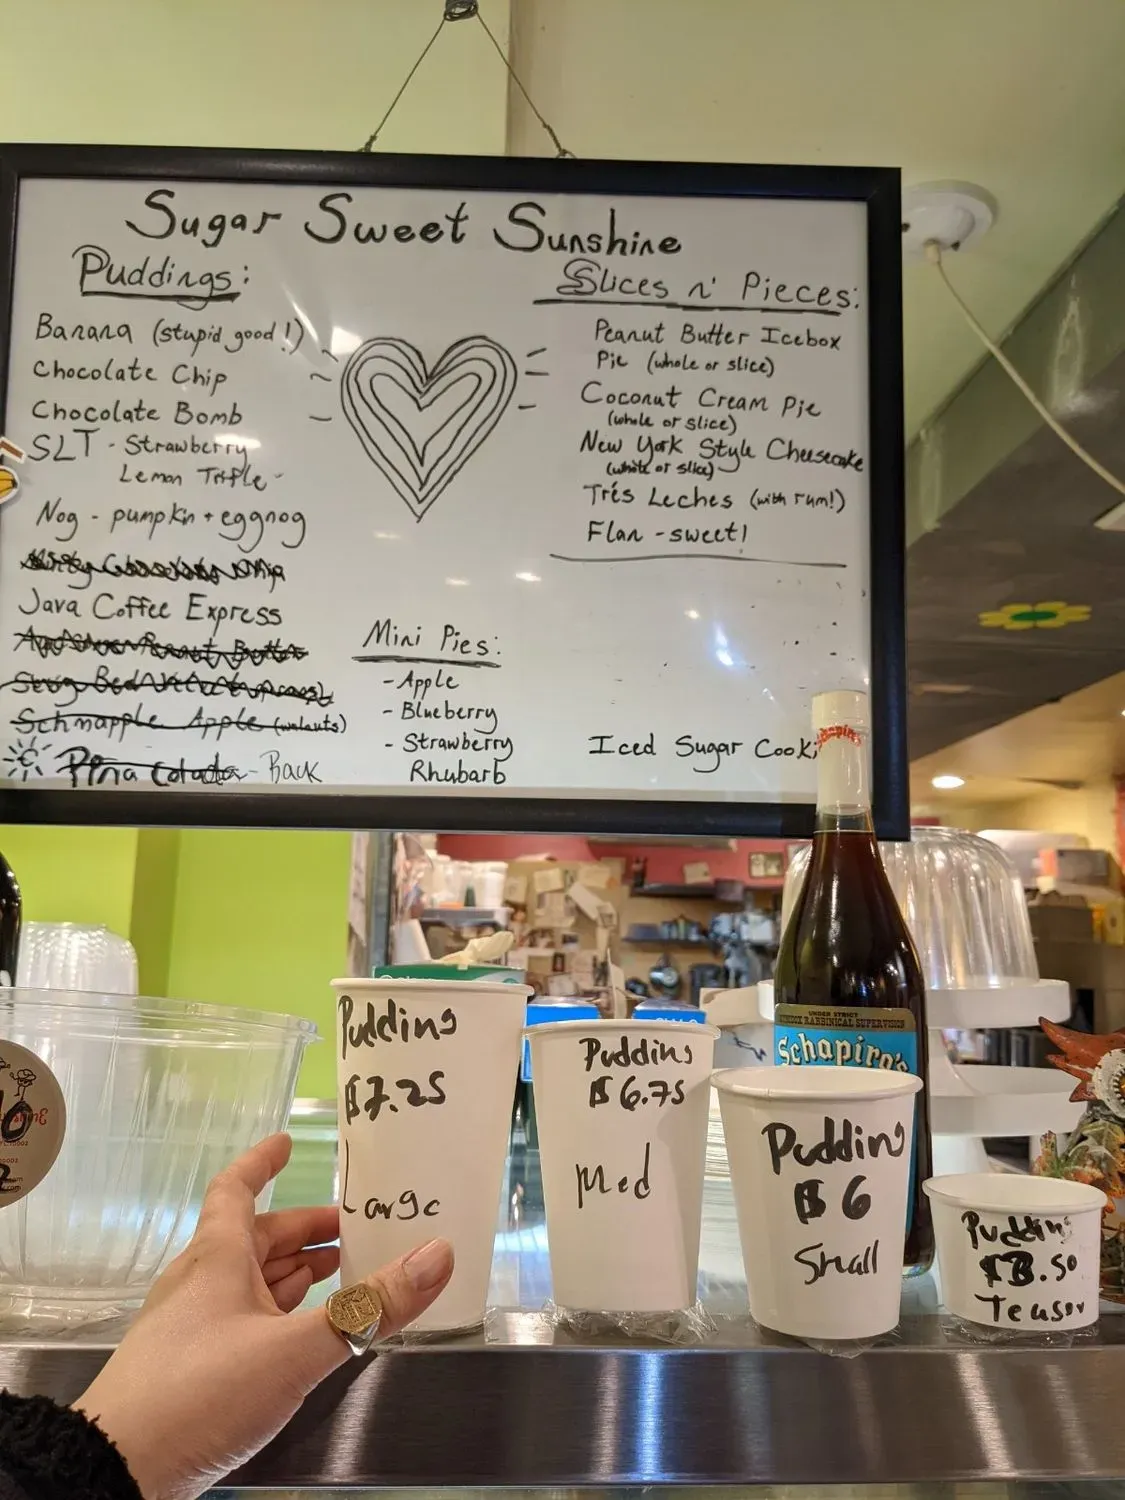 Sugar Sweet Sunshine
Puddings:
Banana (stupid good!)
Chocolate Chip
Chocolate Bomb
SLT - Strawberry
Lemon Trifle -
Nog - pumpkin + eggnog
Java Coffee Express
Schmapple Apple (walnuts)
Pina Colada - Back
Slices n' Pieces:
Peanut Butter Icebox
Pie (whole or slice)
Coconut Cream Pie
(whole or slice)
New York Style Cheesecake
(whole or slice)
Trés Leches (with rum!)
Flan - sweet!
Mini Pies:
- Apple
- Blueberry
- Strawberry
Rhubarb
Iced Sugar Cooki
Schapiro's
UNDER STRICT
RABBINICAL SUPERVISION
Schapiro's
Pudding
$7.25
Large
Pudding
$6.75
Med
Pudding
$6
Small
Pudding
$3.50
Teaser